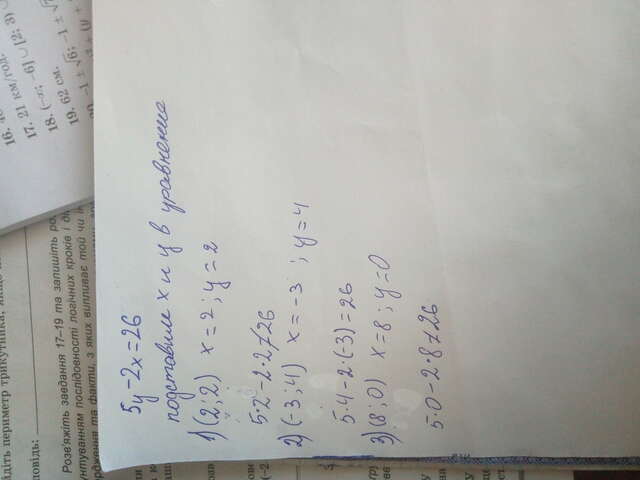 йдіть периметр трикутника, якщо
повідь:
Розв'яжіть завдання 17–19 та запишіть
ґрунтуванням послідовності логічних кроків і
рдження та факти, з яких випливає той чи
17. 21 км/год.
18. (−∞; −6] ∪ [2; 3) ∪
19. 62 см.
5y − 2x = 26
подставим x и y в уравнение
1) (2; 2) x = 2; y = 2
5·2 − 2·2 ≠ 26
2) (−3; 4) x = −3 ; y = 4
5·4 − 2·(−3) = 26
3) (8; 0) x = 8; y = 0
5·0 − 2·8 ≠ 26